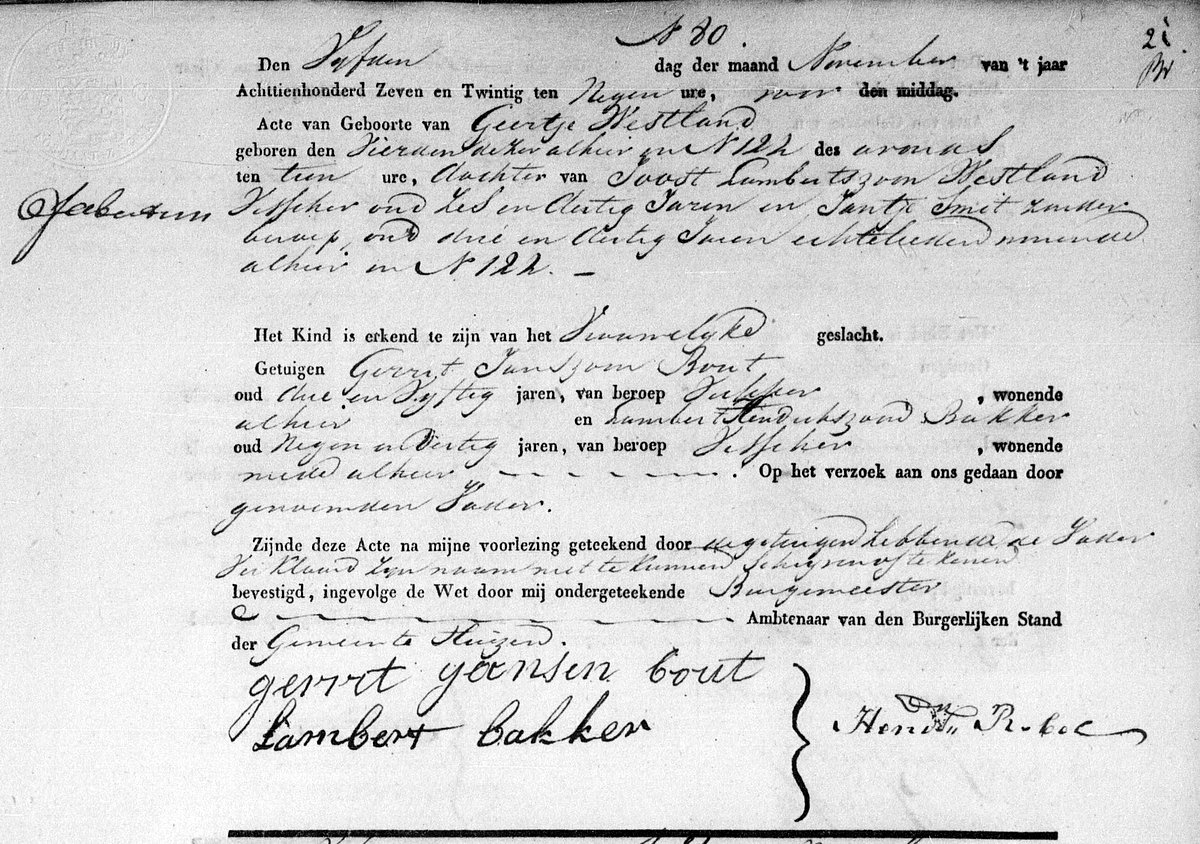 N 80.
21
Den Vyfden dag der maand November van 't jaar
Achttienhonderd Zeven en Twintig ten Negen ure, voor den middag.
Acte van Geboorte van Geertje Westland
geboren den Vierden dezer alhier in N 122 des avonds
ten tien ure, dochter van Joost Lambertszoon Westland
Visscher oud zes en dertig Jaren en Jantje Smit zonder
beroep, oud drie en dertig Jaren echtelieden wonende
alhier in N 122. —
Het Kind is erkend te zijn van het Vrouwelyke geslacht.
Getuigen Gerrit Janszoon Bout
oud drie en Vyftig jaren, van beroep , wonende
alhier en Lambert Hendrikszoon Bakker
oud Negen en Dertig jaren, van beroep Visscher , wonende
mede alhier . Op het verzoek aan ons gedaan door
genoemden Vader.
Zijnde deze Acte na mijne voorlezing geteekend door de getuigen hebbende de Vader
Verklaard zyn naam niet te kunnen schryven of te kenen
bevestigd, ingevolge de Wet door mij ondergeteekende Burgemeester
Ambtenaar van den Burgerlijken Stand
der Gemeente Huizen.
gerrit jansen bout
Lambert bakker